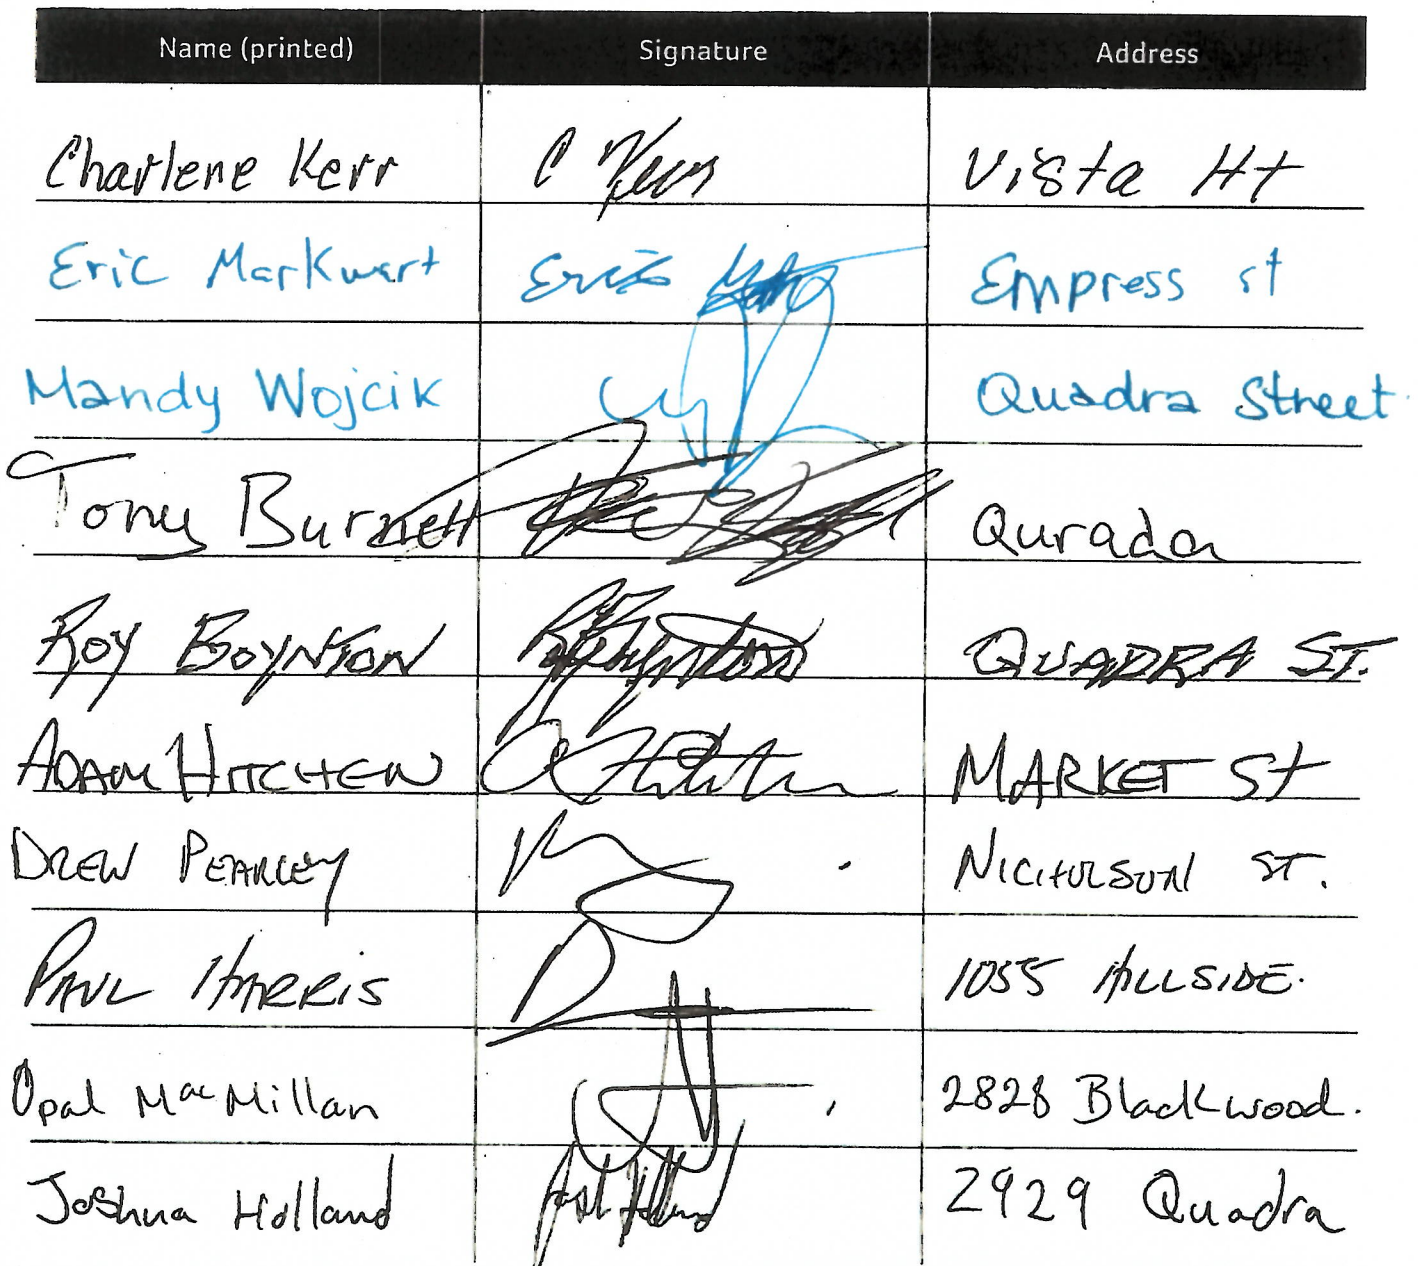 Name (printed) Signature Address
Charlene Kerr C Kerr Vista Ht
Eric Markwart Eric Empress st
Mandy Wojcik Quadra Street.
Tony Burnett Qurada
ROY BOYNTON RBoynton QUADRA ST.
ADAM HITCHEN MARKET St
DREW PEARCEY NICHOLSON ST.
PAUL HARRIS 1055 HILLSIDE.
Opal MacMillan 2828 Blackwood.
Joshua Holland Josh Holland 2929 Quadra